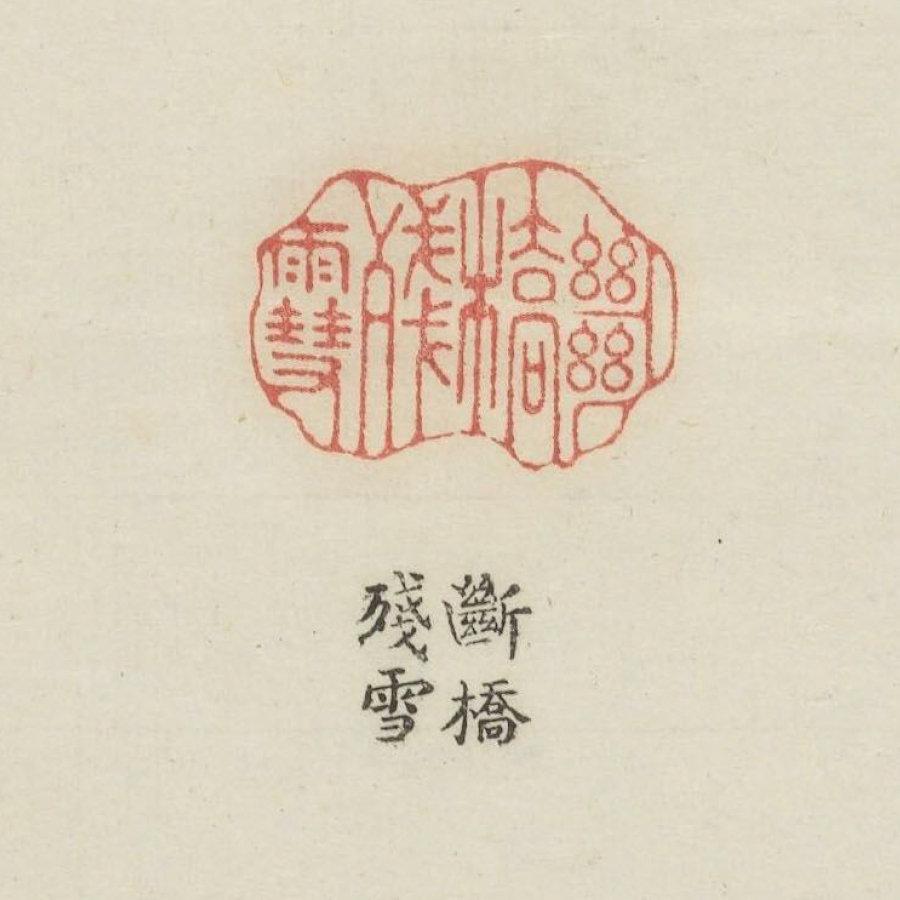 斷橋殘雪
斷橋
殘雪